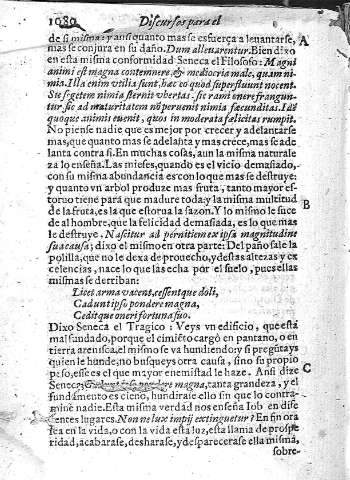 1080 Discursos para el
de si misma: y aun quanto mas se esfuerça a leuantarse, A
mas se conjura en su daño. Dum alleuarentur. Bien dixo
en esta misma conformidad Seneca el Filosofo: Magni
animi est magna contemnere, & mediocria male, quam ni-
mia. Illa enim vtilia sunt, hæc eo quod superfluunt nocent.
Sic segetem nimia sternit vbertas. sic rami onere frangun-
tur sic ad maturitatem nõ peruenit nimia fæcunditas. Idẽ
quoque animis euenit, quos in moderata fælicitas rumpit.
No piense nadie que es mejor por crecer y adelantarse
mas, que quanto mas se adelanta y mas crece, mas se ade
lanta contra si. En muchas cosas, aun la misma naturale
za lo enseña. Las mieses, quando es el vicio demasiado,
con su misma abundancia es con lo que mas se destruye:
y quanto vn arbol produze mas fruta, tanto mayor es-
toruo tiene para que madure toda: y la misma multitud
de la fruta, es la que estorua la sazon. Y lo mismo le suce B
de al hombre, que la felicidad demasiada, es lo que mas
le destruye. Nascitur ad pernitiem ex ipsa magnitudine
sua causa; dixo el mismo en otra parte: Del paño sale la
polilla, que no le dexa de prouecho, y destas altezas y ex
celencias, nace lo que las echa por el suelo, pues ellas
mismas se derriban:
Licet arma vacent, cessentque doli,
Cadunt ipso pondere magna,
Ceditque oneri fortuna suo.
Dixo Seneca el Tragico: Veys vn edificio, que està
mal fundado, porque el cimiẽto cargò en pantano, o en
tierra arenisca, el mismo se va hundiendo: y si preguntays
quien le hunde, no busqueys otra causa, sino su propio
peso, esse es el que mayor enemistad le haze. Ansi dize C
Seneca: Cadunt ipso pondere magna, tanta grandeza, y el
fundamento es cieno, hundirase ello sin que lo contra-
mine nadie. Esta misma verdad nos enseña Iob en dife
rentes lugares. Non ne lux impij extinguetur? En fin ora
sea en la vida, o con la vida esta luz, esta llama de prospe
ridad, acabarase, desharase, y desparecerase ella misma,
sobre-